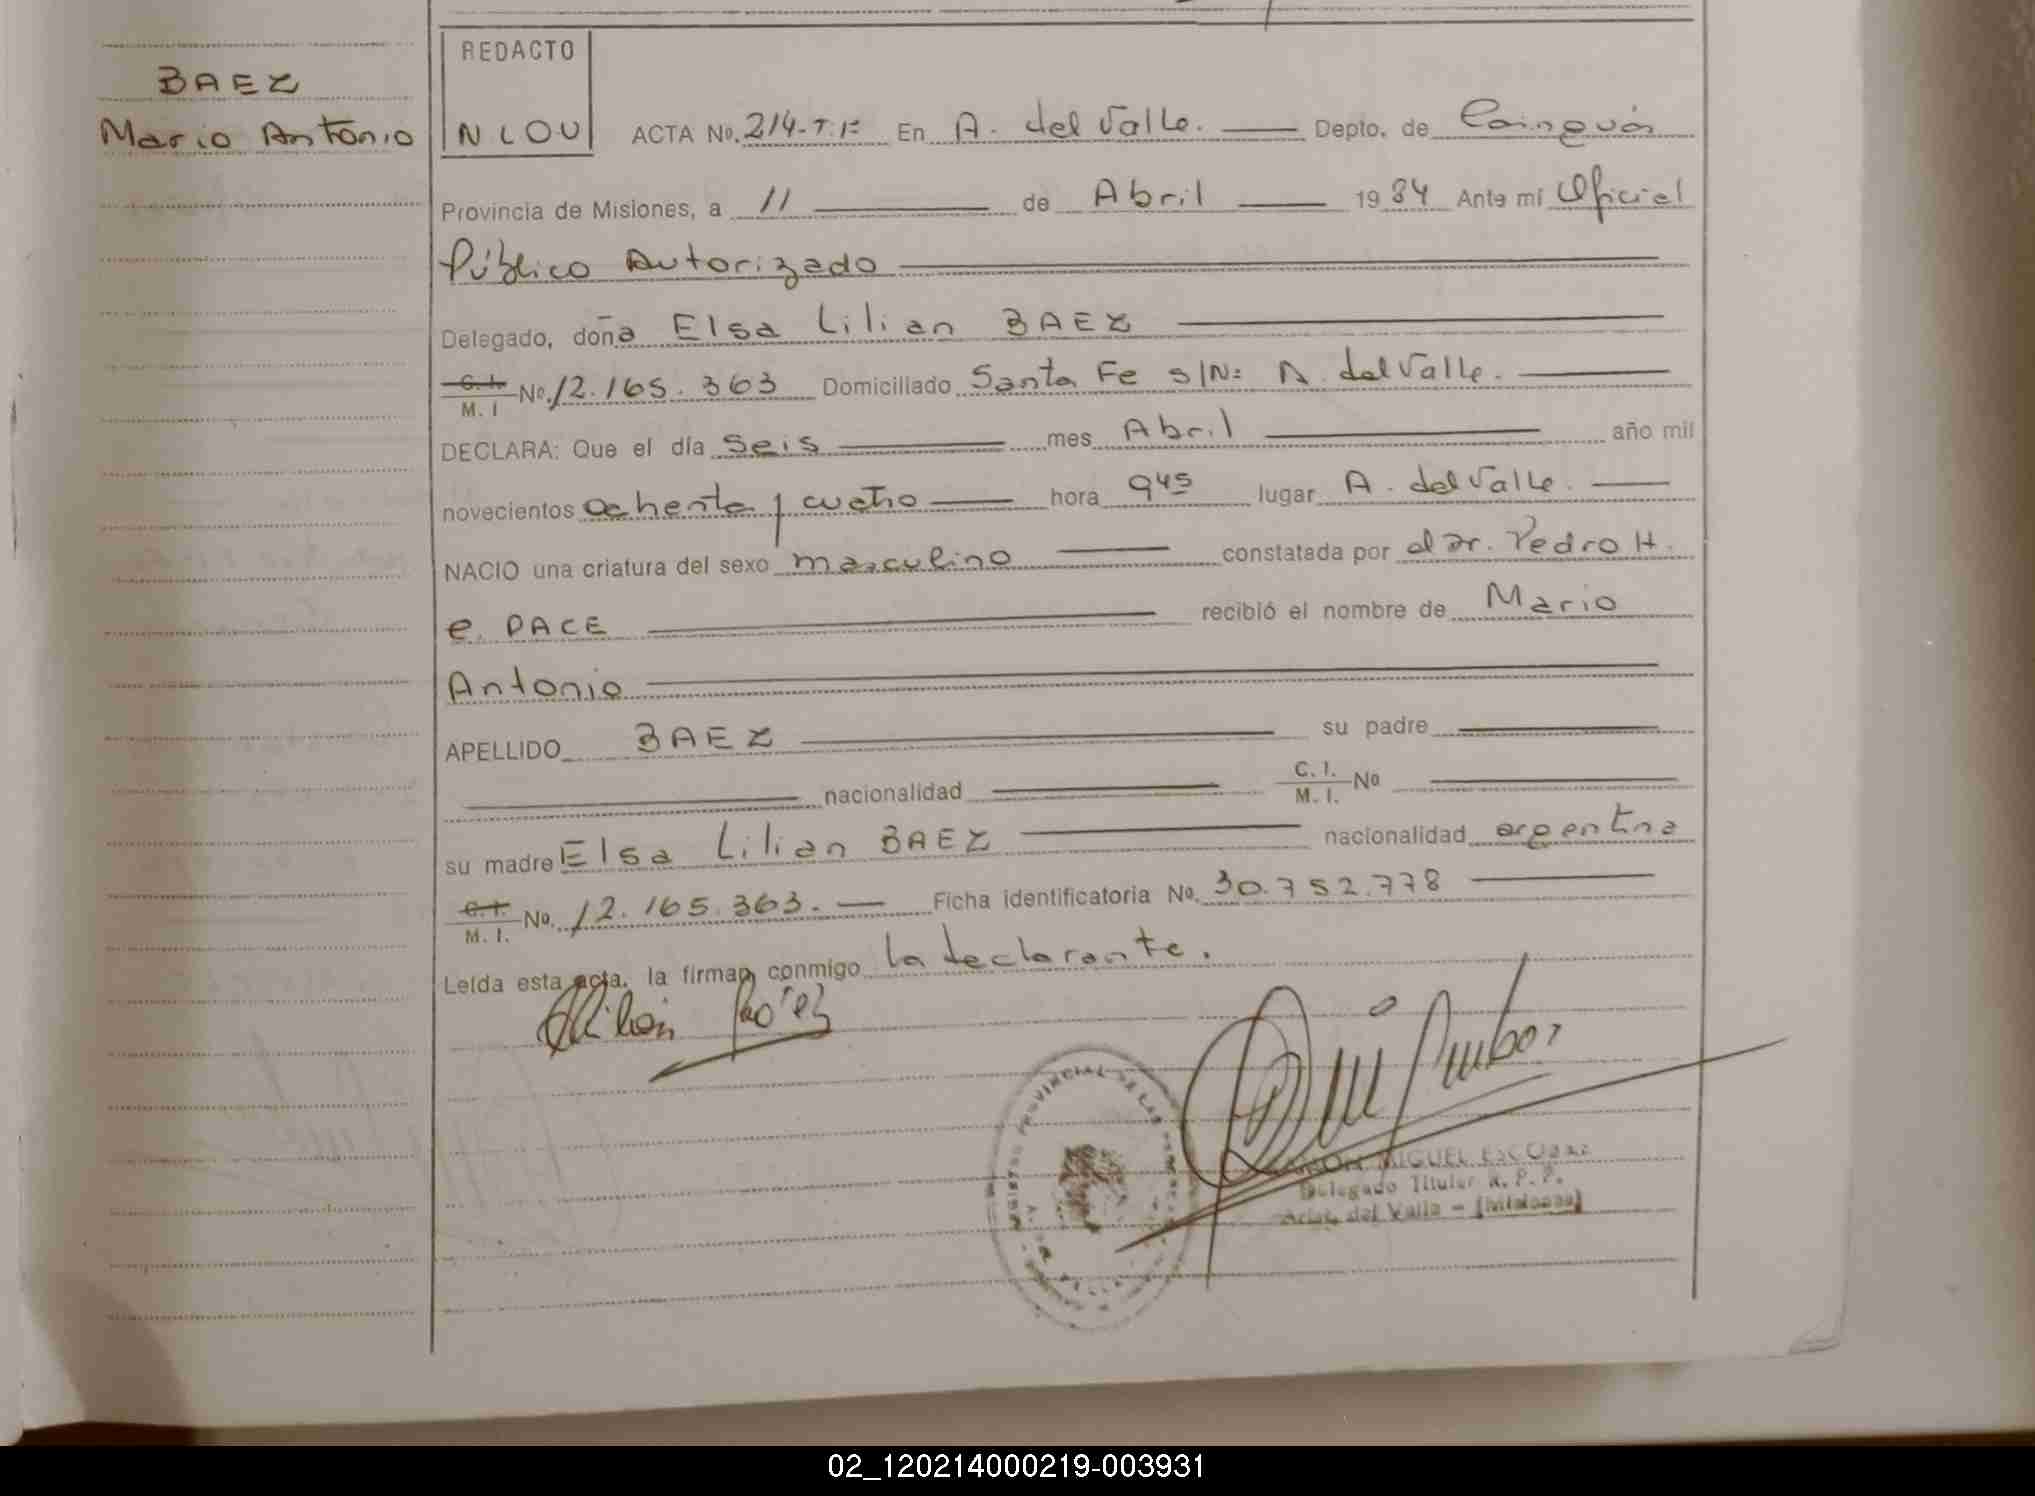 BAEZ
Mario Antonio
REDACTO
NLOU
ACTA No. 214-T.I: En A. del Valle. Depto. de Cainguás
Provincia de Misiones, a 11 de Abril 1984 Ante mí Oficial
Público Autorizado
Delegado, doña Elsa Lilian BAEZ
C. I. / M. I No. 12.165.363 Domiciliado Santa Fe s/N: A. del Valle.
DECLARA: Que el día seis mes Abril año mil
novecientos ochenta y cuatro hora 9 45 lugar A. del Valle.
NACIO una criatura del sexo masculino constatada por el Dr. Pedro H.
e. PACE recibió el nombre de Mario
Antonio
APELLIDO BAEZ su padre
nacionalidad C. I. / M. I. No
su madre Elsa Lilian BAEZ nacionalidad argentina
C. I. / M. I. No. 12.165.363. Ficha identificatoria No. 30.752.778
Leída esta acta, la firman conmigo la declarante.
Lilian Báez
REGISTRO PROVINCIAL DE LAS PERSONAS
MIGUEL ESCOBAR
Delegado Titular R. P. P.
Arist. del Valle - (Misiones)
02_120214000219-003931